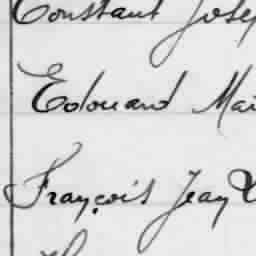 Constant Josep
Edouard Mai
François Jean